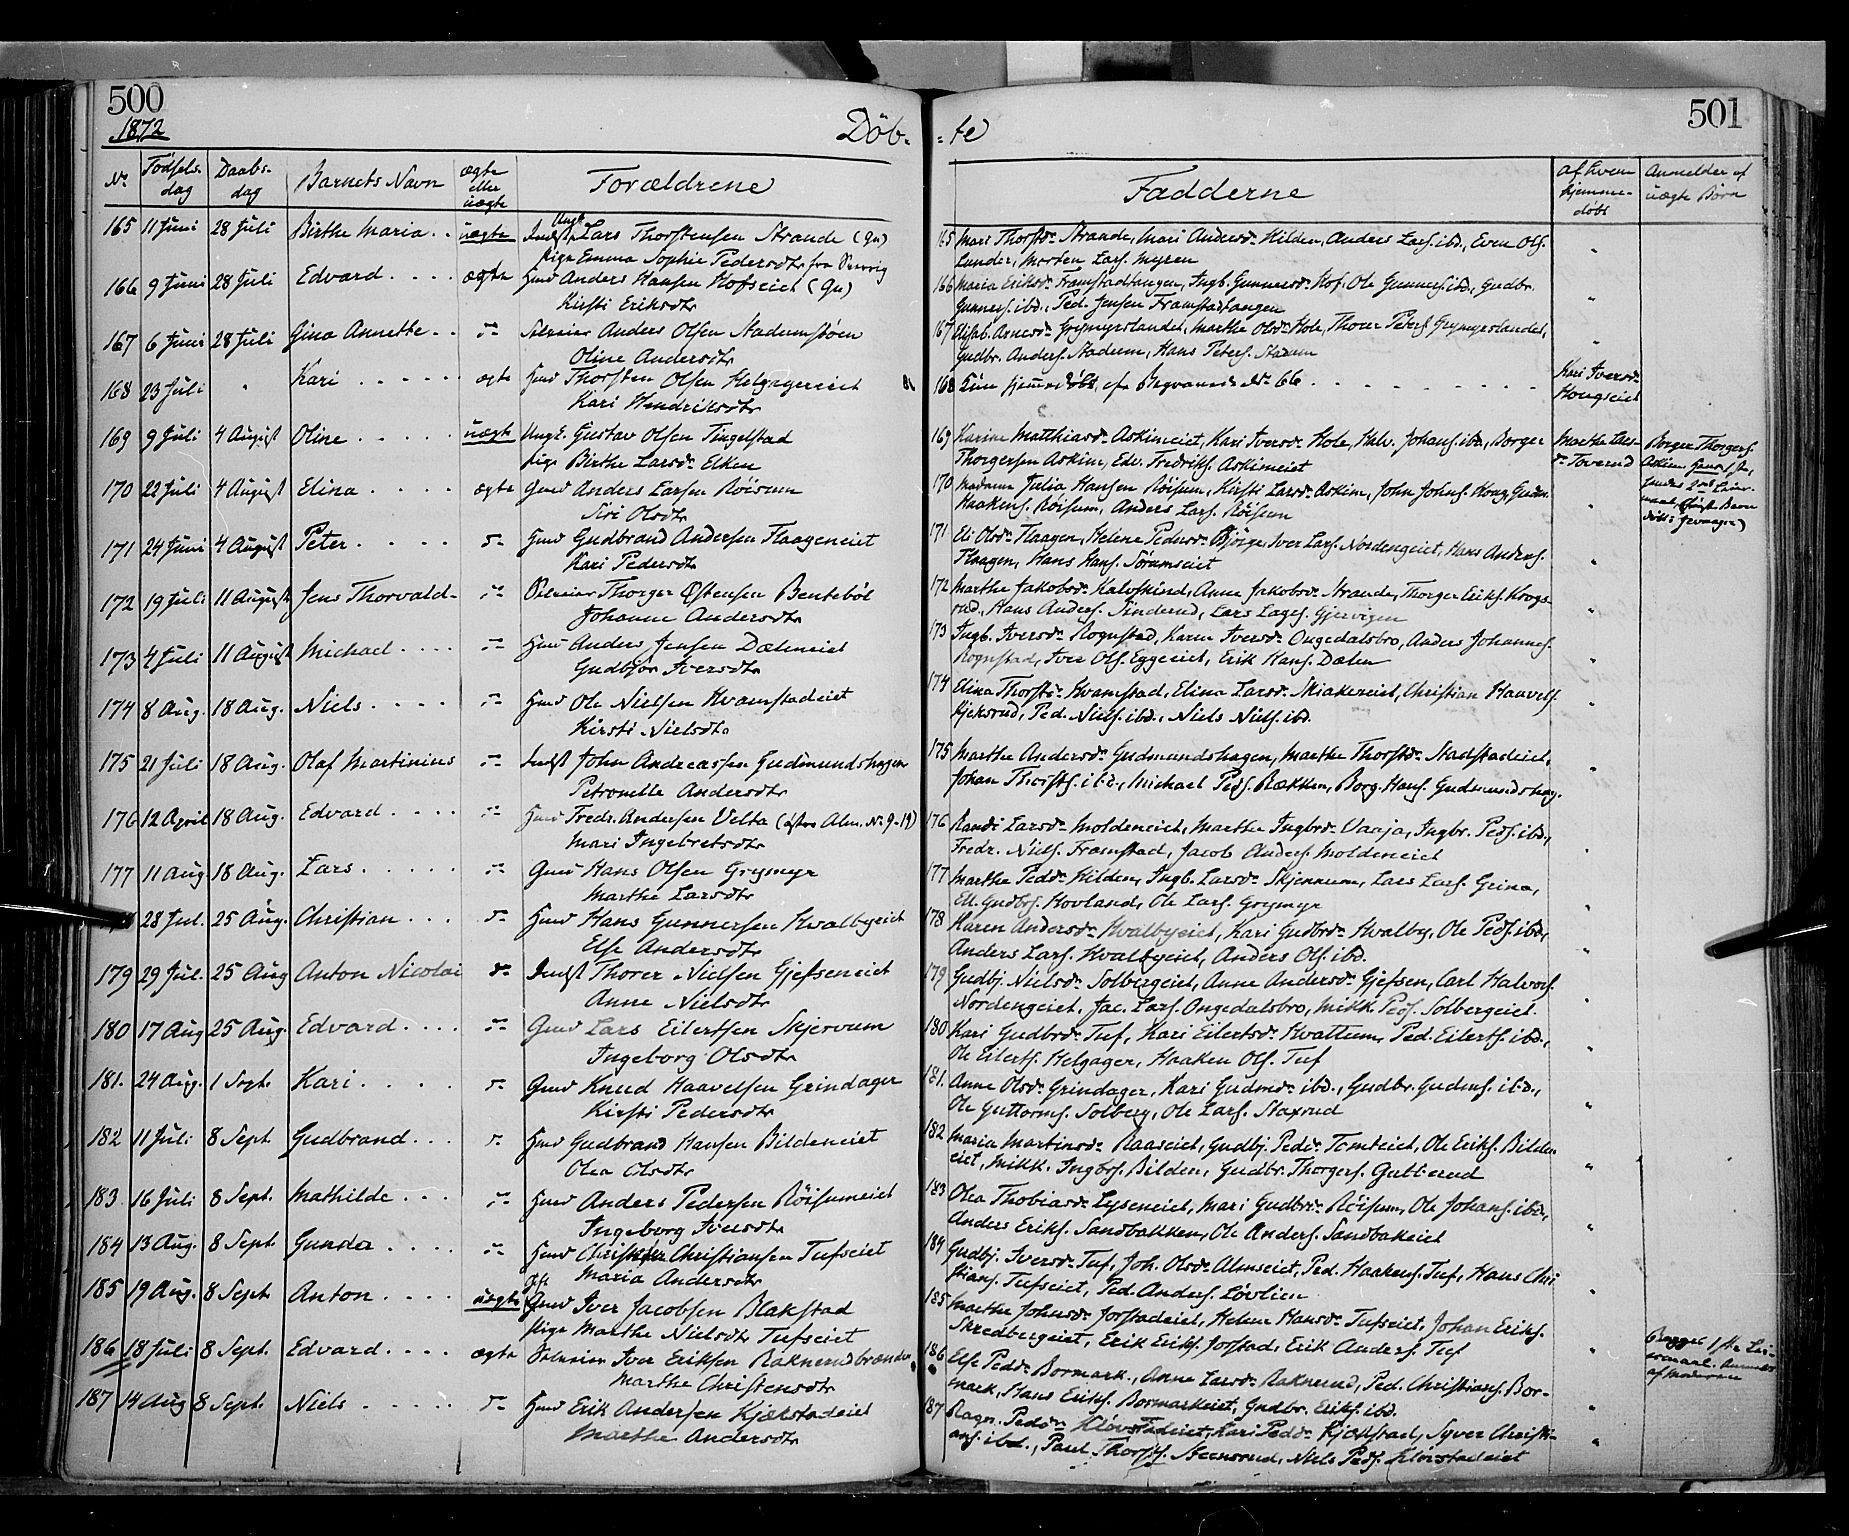 500
1872
Döb-
No
Födsels-
dag
Daabs-
dag
Barnets Navn
ægte
eller
uægte
Forældrene
165 11 Juni 28 Juli Birthe Maria . . uægte Indst. Ungk. Lars Thorstensen Strande (Gn)
Pige Emma Sophie Pedersdtr fra
166 9 Juni 28 Juli Edvard . . . . ægte Hmd Anders Hansen Hofseiet (Gn)
Kirsti Eriksdtr
167 6 Juni 28 Juli Gina Annette . . Selveier Anders Olsen Stadumstöen
Oline Andersdtr
168 23 Juli " Kari . . . . . ægte Hmd Thorsten Olsen Helgagereiet
Kari Hendriksdtr
169 9 Juli 4 August Oline . . . . . uægte Ungk. Gustav Olsen Tingelstad
Pige Birthe Larsdr Elken
170 22 Juli 4 August Elina . . . . ægte Gmd Anders Larsen Röisum
Siri Olsdtr
171 24 Juni 4 August Peter . . . . . Hmd Gudbrand Andersen Flaageneiet
Kari Pedersdtr
172 19 Juli 11 August Jens Thorvald - Selveier Thorger Östensen Benteböl
Johanne Andersdtr
173 4 Juli 11 August Michael . . . . Hmd Anders Jensen Dæleneiet
Gudbjör Iversdtr
174 8 Aug. 18 Aug. Niels . . . . Hmd Ole Nielsen Kvamstadeiet
Kirsti Nielsdtr
175 21 Juli 18 Aug. Olaf Martinius Indst John Andreassen Gudmundshagen
Petronelle Andersdtr
176 12 April 18 Aug. Edvard . . . . Hmd Fredr. Andersen Velta (östre Alm. No 9-19)
Mari Ingebretsdtr
177 11 Aug 18 Aug. Lars . . . . . Gmd Hans Olsen Grymyr
Marthe Larsdtr
28 Jul. 25 Aug. Christian . . . Hmd Hans Gunnersen Hvalbyeiet
Else Andersdtr
179 29 Jul. 25 Aug Anton Nicolai Indst Thorer Nielsen Gjefseneiet
Anne Nielsdtr
180 17 Aug 25 Aug. Edvard . . . . Gmd Lars Eilertsen Skjervum
Ingeborg Olsdtr
181. 24 Aug. 1 Sept. Kari . . . . Gmd Knud Haavelsen Grindager
Kirsti Pedersdtr
182 11 Juli 8 Sept Gudbrand . . . Hmd Gudbrand Hansen Bildeneiet
Olea Olsdtr
183 16 Juli 8 Sept. Mathilde . . . Hmd Anders Pedersen Röisumeiet
Ingeborg Iversdtr
184 13 Aug. 8 Sept Gunda . . . . Hmd Christian Christiansen Tufseiet
Maria Andersdtr
185 19 Aug. 8 Sept. Anton . . . . uægte Gift Gmd Iver Jacobsen Blakstad
Pige Marthe Nielsdtr Tufseiet
186 18 Juli 8 Sept. Edvard . . . . ægte Selveier Iver Eriksen Raknerudbrænden
Marthe Christensdtr
187 14 Aug 8 Sept. Niels . . . . . Hmd Erik Andersen Kjækstadeiet
Marthe Andersdtr
501
- te
Fadderne
af hvem
hjemme-
döbt
Anmelder af
uægte Börn
165 Mari Thorstdr Strande, Mari Andersdr Hilden, Anders Lars. ibd., Even Ols.
Lunder, Morten Lars. Myren
166 Maria Eriksdr Framstadtangen, Ingb. Gunnersdr Hof, Ole Gunners. ibd., Gudbr.
Gunners. ibd., Ped. Jensen Framstadtangen
167 Elisab. Arnesdr Grymyrslandet, Marthe Olsdr Hole, Thore Peters. Grymyrslandet,
Gudbr. Anders. Stadum, Hans Peters. Stadum
168 Kun hjemmedöbt, cfr. Begravned. No 66 . . . . . Kari Iversdr
Hougseiet
169 Karine Matthiasdr Askimeiet, Kari Iversdr Hole, Halv. Johans. ibd., Borger
Thorgersen Askim, Edv. Fredriks. Askimeiet
Marthe Lars-
dr Toverud
Borger Thorgers.
Askim
170 Madame Julia Hansen Röisum, Kirsti Larsdr Askim, John Johns. Houg, Gudbr.
Haakens. Röisum, Anders Lars. Röisum
171 Eli Olsdr Flaagen, Helene Pedersdr Björge, Iver Lars. Nordengeiet, Hans Anders.
Flaagen, Hans Hans. Sörumseiet
172 Marthe Jakobsdr Kalvskind, Anne Jakobsdr Strande, Thorger Eriks. Kougs-
rud, Hans Anders. Tinderud, Lars Lages. Gjervigen
173 Ingb. Iversdr Rognstad, Karen Iversdr Ongedalsbro, Anders Johannes.
Rognstad, Iver Ols. Eggeeiet, Erik Hans. Dælen
174 Elina Thorstdr Kvamstad, Elina Larsdr Skiakereiet, Christian Haavels.
Kjeksrud, Ped. Niels. ibd., Niels Niels. ibd.
175 Marthe Andersdr Gudmundshagen, Marthe Thorstdr Stadstadeiet,
Johan Thorsts. ibd., Michael Peds. Rækken, Borg. Hans. Gudmundshag.
176 Randi Larsdr Moldeneiet, Marthe Ingbrdr Vaaja, Ingbr. Peds. ibd.,
Fredr. Niels. Framstad, Jacob Anders. Moldeneiet
177 Marthe Pedsdr Hilden, Ingb. Larsdr Skjennum, Lars Lars. Grina,
Ell. Gudbrs. Hovland, Ole Lars. Grymyr
178 Karen Andersdr Hvalbyeiet, Kari Gudbrdr Hvalby, Ole Peds. ibd.,
Anders Lars. Hvalbyeiet, Anders Ols. ibd.
179 Gudbj. Nielsdr Solbergeiet, Anne Andersdr Gjefsen, Carl Halvors.
Nordengeiet, Jac. Lars. Ongedalsbro, Mikk. Peds. Solbergeiet.
180 Kari Gudbrdr Tuf, Kari Eilertsdr Hvattum, Ped. Eilerts. ibd.,
Ole Eilerts. Helgager, Haaken Ols. Tuf
181. Anne Olsdr Grindager, Kari Gudmdr ibd., Gudbr. Gudms. ibd.,
Ole Guttorms. Solberg, Ole Lars. Staxrud
182 Maria Martinsdr Raaseiet, Gudbj. Pedsdr Tomteiet, Ole Eriks. Bilden-
eiet, Mikk. Ingbrs. Bilden, Gudbr. Thorgers. Gutterud
183 Olea Thobiasdr Lyseneiet, Mari Gudbrdr Röisum, Ole Johans. ibd.,
Anders Eriks. Sandbakken, Ole Anders. Sandbakeiet
184 Gudbj. Iversdr Tuf, Joh. Olsdr Almseiet, Ped. Haakens. Tuf, Hans Chri-
stians. Tufseiet, Ped. Anders. Lövlien
185 Marthe Johnsdr Jorstadeiet, Helene Hansdr Tufseiet, Johan Eriks.
Skredbergeiet, Erik Eriks. Jorstad, Erik Anders. Tuf
Begges 1ste Lei-
ermaal. Anmeldt
af Moderen
186 Else Pedsdr Bormark, Anne Larsdr Raknerud, Ped. Christians. Bor-
mark, Hans Eriks. Bormarkeiet, Gudbr. Eriks. ibd.
187 Ragn. Pedsdr Klövstadeiet, Kari Pedsdr Kjækstad, Syver Christi-
ans. ibd., Paul Thorsts. Steensrud, Niels Peds. Klövstadeiet